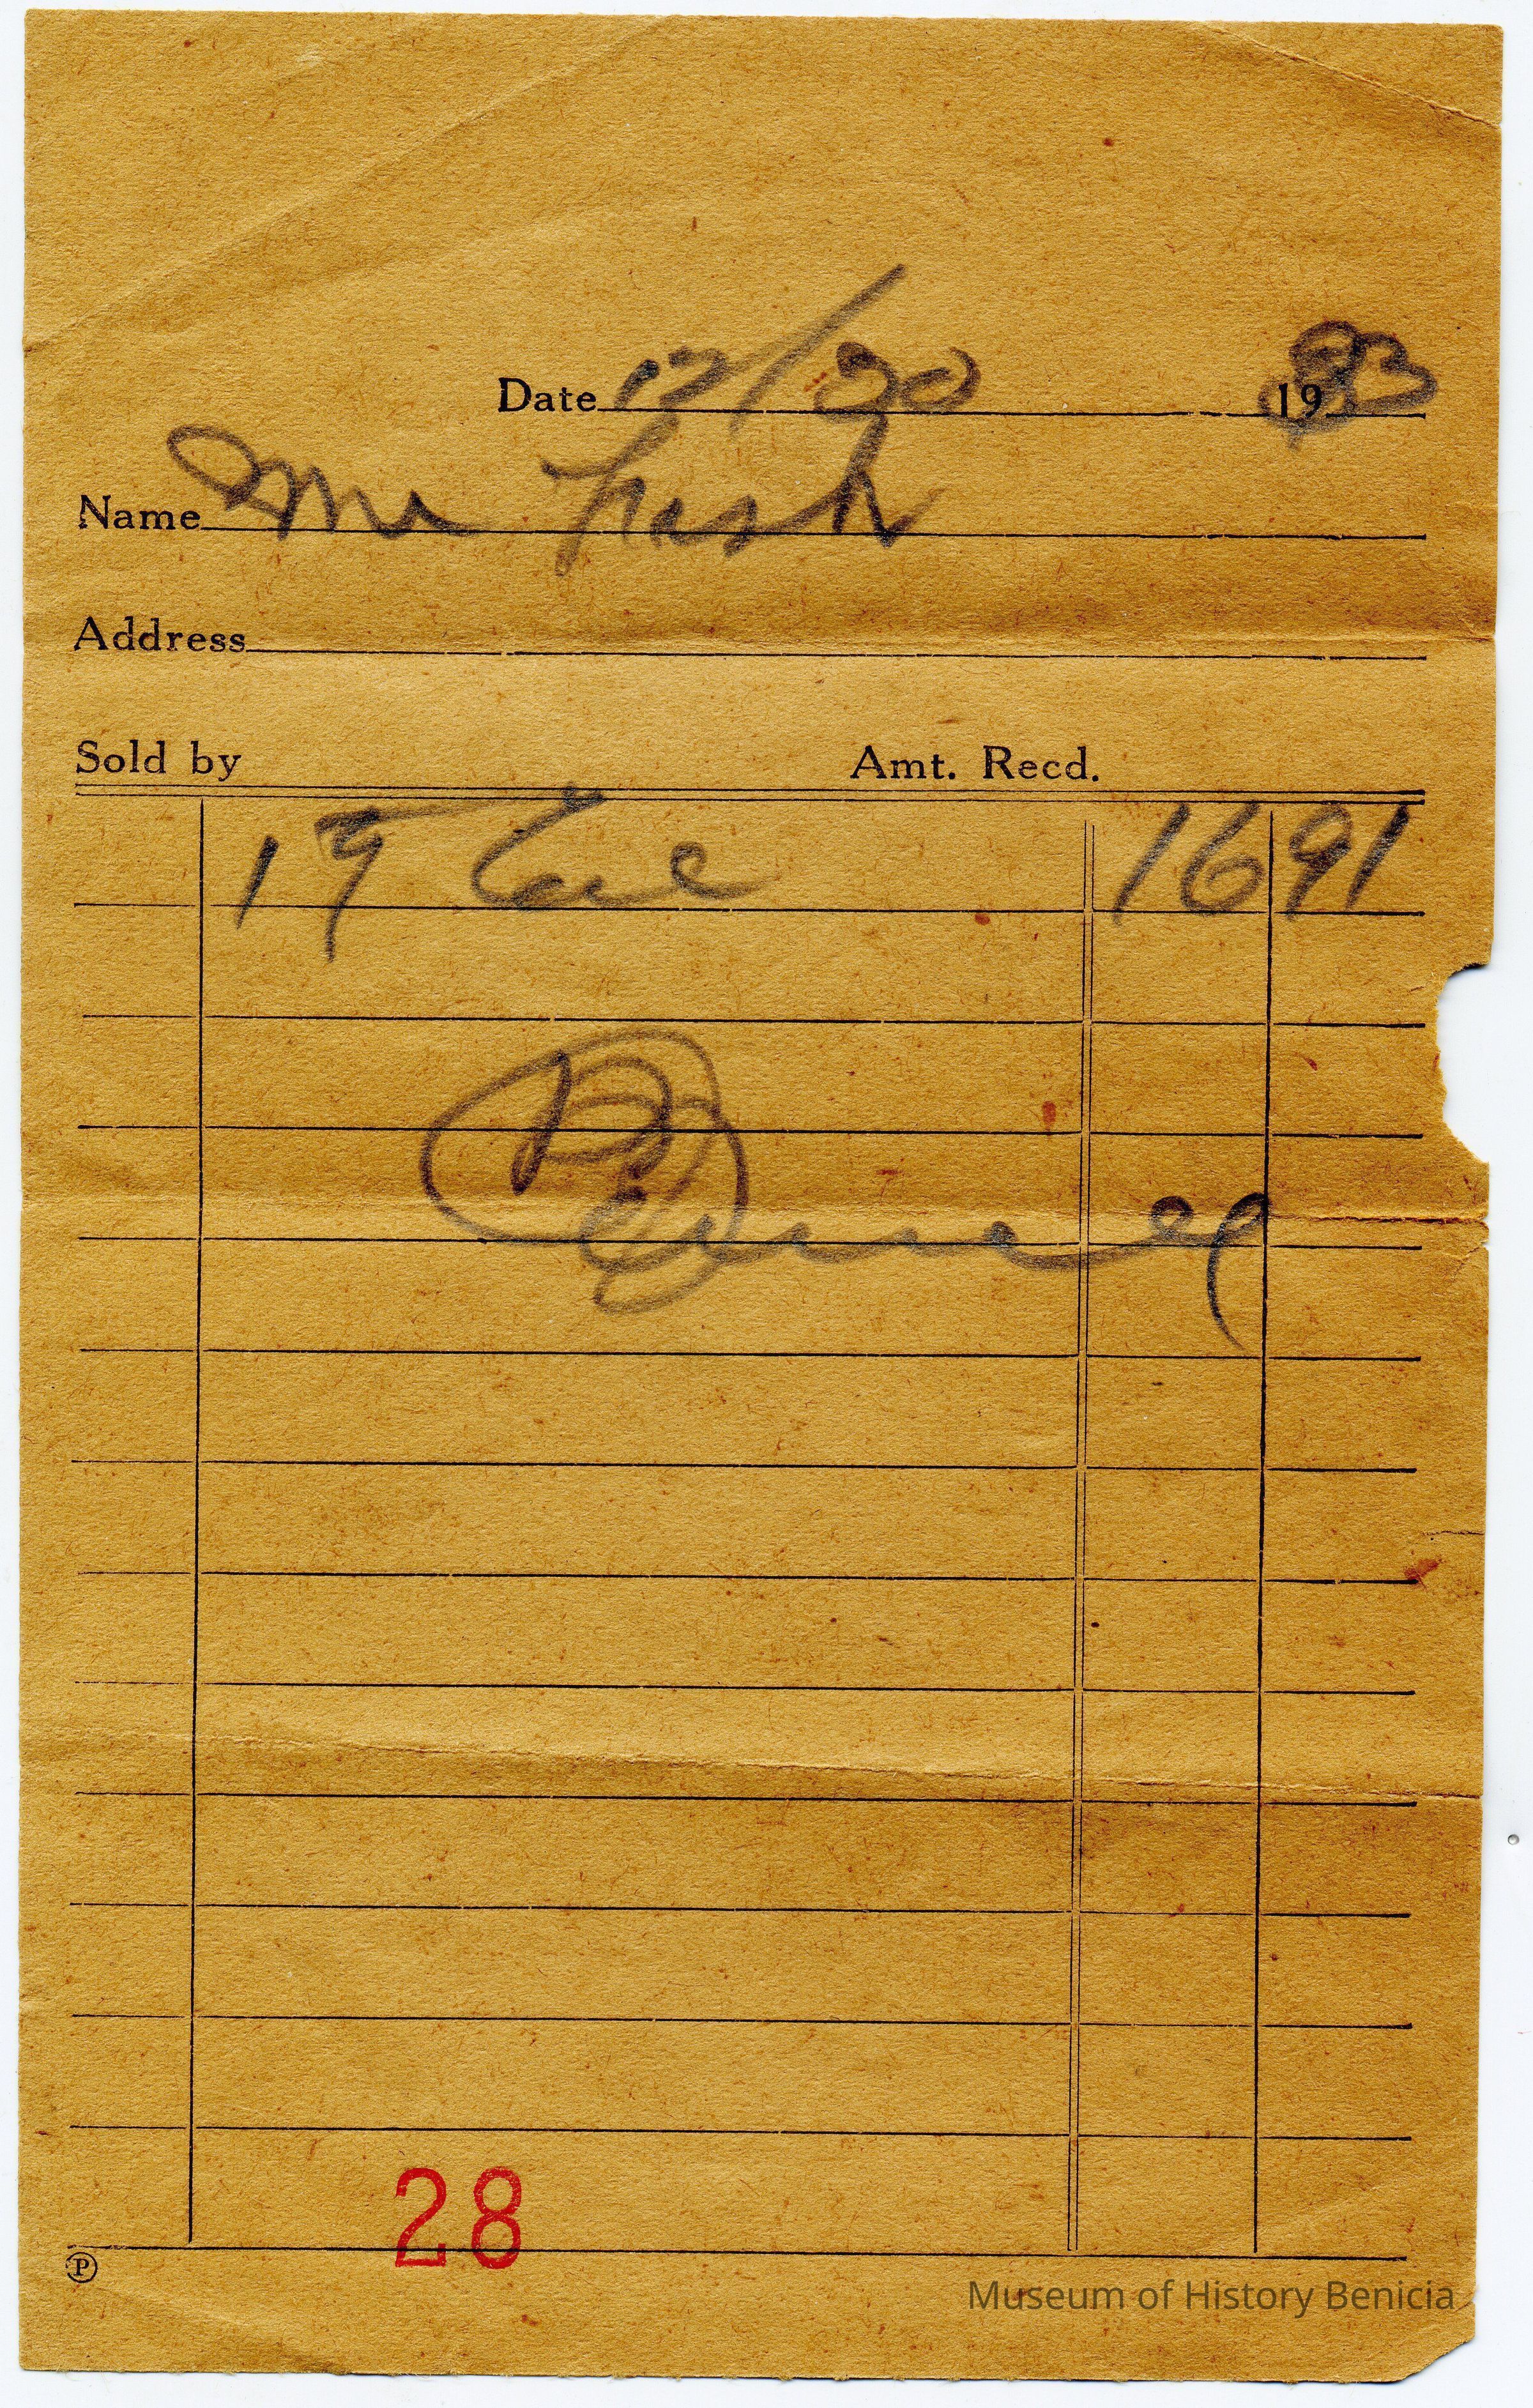 Date 12/20 19
Name Mr
Address
Sold by Amt. Recd.
19 1691
28
P
Museum of History Benicia